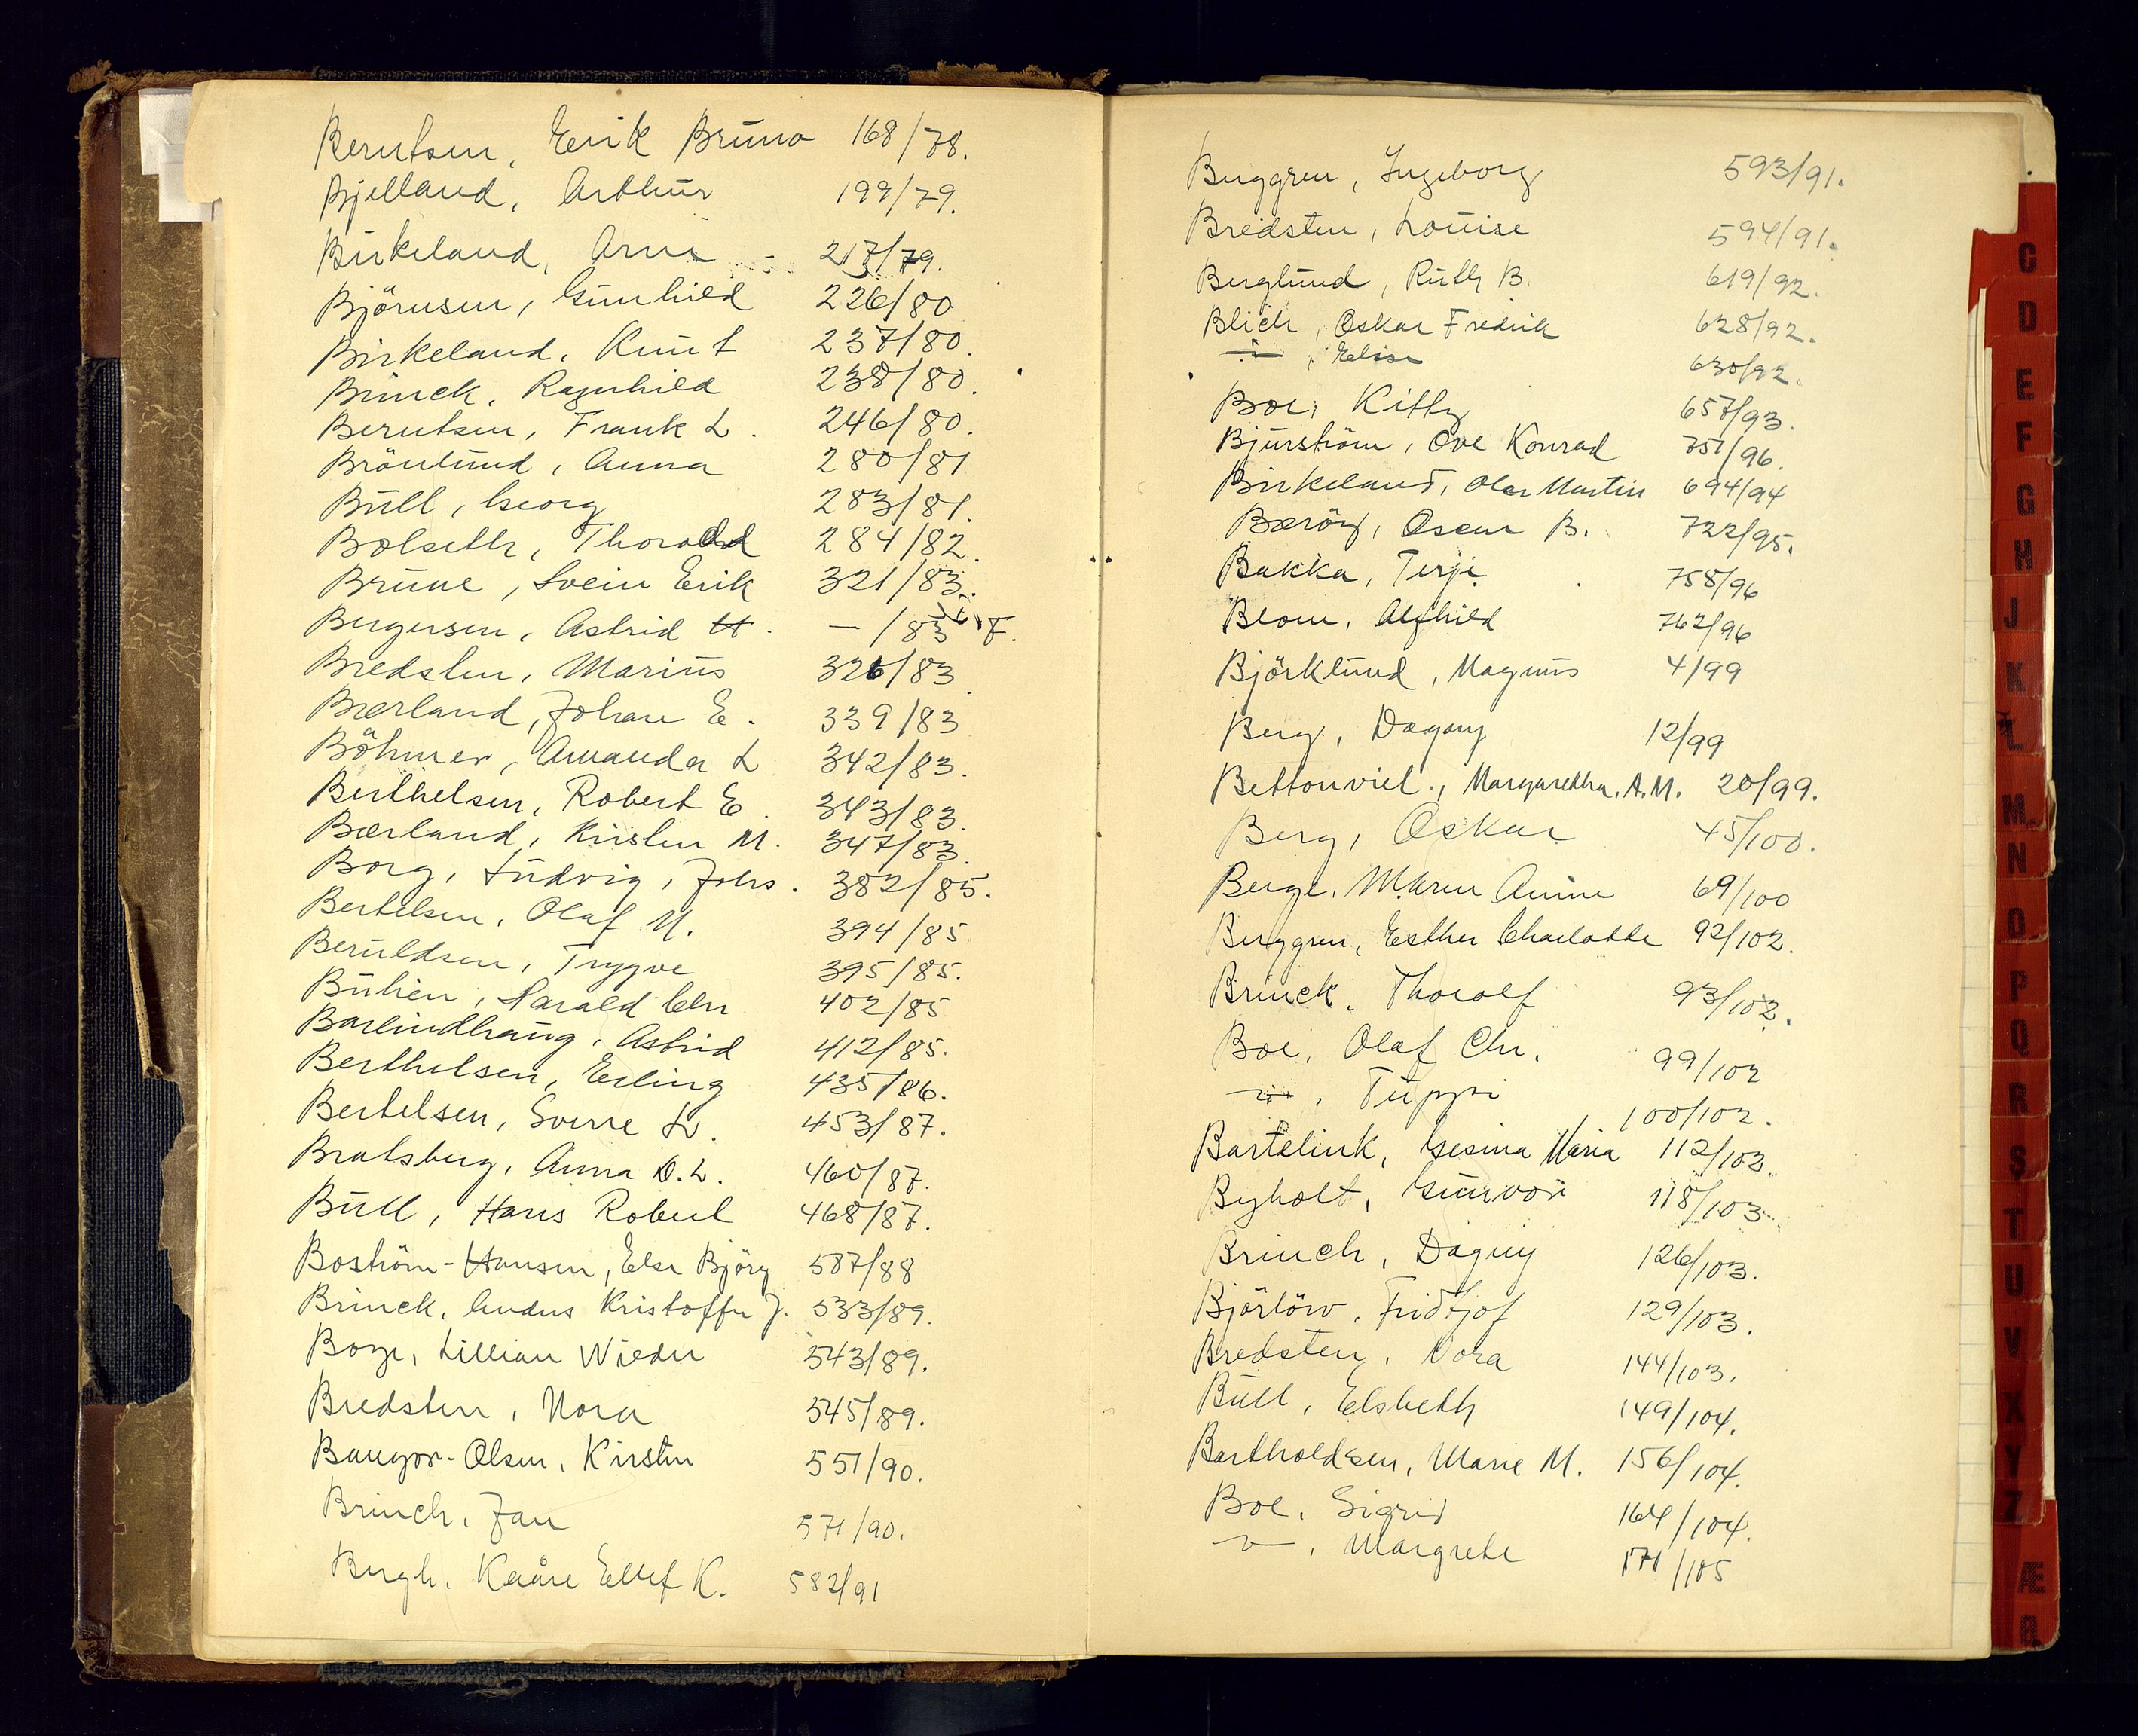 Berntsen, Erik Bruno 168/78.
Bjelland, Arthur 199/79.
Birkeland, Arne 217/79.
Björnsen, Gunhild 226/80
Birkeland, Knut 237/80.
Brinck, Ragnhild 238/80.
Berntsen, Frank L. 246/80.
Brönlund, Anna 280/81
Bull, Georg 283/81.
Bolseth, Thorodd 284/82.
Brune, Svein Erik 321/83.
Bergersen, Astrid H. — /83 F.
Bredsten, Marius 326/83.
Bærland, Johan E. 339/83
Böhmer, Amanda L 342/83.
Berthelsen, Robert E. 343/83.
Bærland, Kristen M. 347/83.
Borg, Ludvig, Johs. 382/85.
Bertelsen, Olaf M. 394/85.
Beruldsen, Trygve 395/85.
Buhien, Harald Chr 402/85
Barlindhaug, Astrid 412/85.
Berthelsen, Erling 435/86.
Bertelsen, Sverre L. 453/87.
Bratsberg, Anna D.L. 460/87.
Bull, Hans Robert 468/87.
Boström-Hansen, Else Björg 587/88
Brinck, Anders Kristoffer J. 533/89.
Boye, Lillian Wieder 543/89.
Bredsten, Nora 545/89.
Baugor-Olsen, Kirsten 551/90.
Brinch, Jan 571/90.
Bergh, Kaåre Ellef K. 582/91
Berggren, Ingeborg 593/91.
Bredsten, Louise 594/91.
Berglund, Ruth B. 619/92.
Blich, Oskar Fredrik 628/92.
— " —, Elise 630/92.
Boe, Kitty 657/93.
Bjurström, Ove Konrad 751/96.
Birkeland, Olea Martin 694/94
Bæröy, Oscar B. 722/95.
Bakka, Terje 758/96
Blom, Alfhild 762/96
Björklund, Magnus 4/99
Berg, Dagny 12/99
Bettonviel, Margaretha. A.M. 20/99.
Berg, Oskar 45/100.
Berge, Maren Anine 69/100
Berggren, Esther Charlotte 92/102.
Brinck, Thorolf 93/102.
Boe, Olaf Chr. 99/102
— " —, Tuppi 100/102.
Bartelink, Gesina Maria 112/103.
Byholt, Gunvor 118/103.
Brinch, Dagny 126/103.
Björlöw, Fridtjof 129/103.
Bredsten, Nora 144/103.
Bull, Elsbeth 149/104.
Bartholdsen, Marie M. 156/104.
Boe, Sigrid 164/104.
— " —, Margrete 171/105
C
D
E
F
G
H
J
K
L
M
N
O
P
Q
R
S
T
U
V
X
Y
Z
Æ
Ø